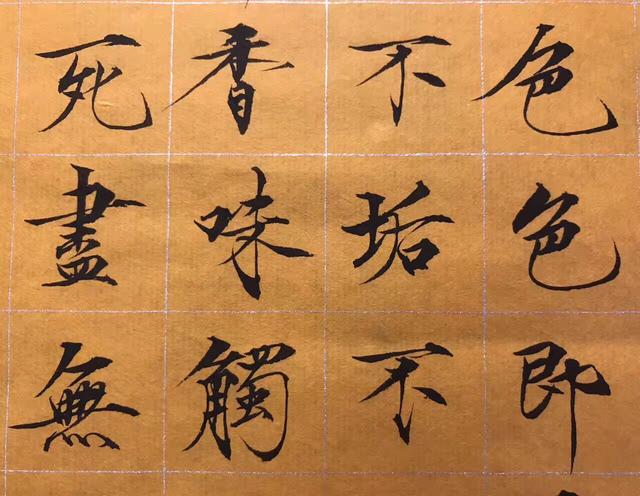 色色即
不垢不
香味觸
死盡無